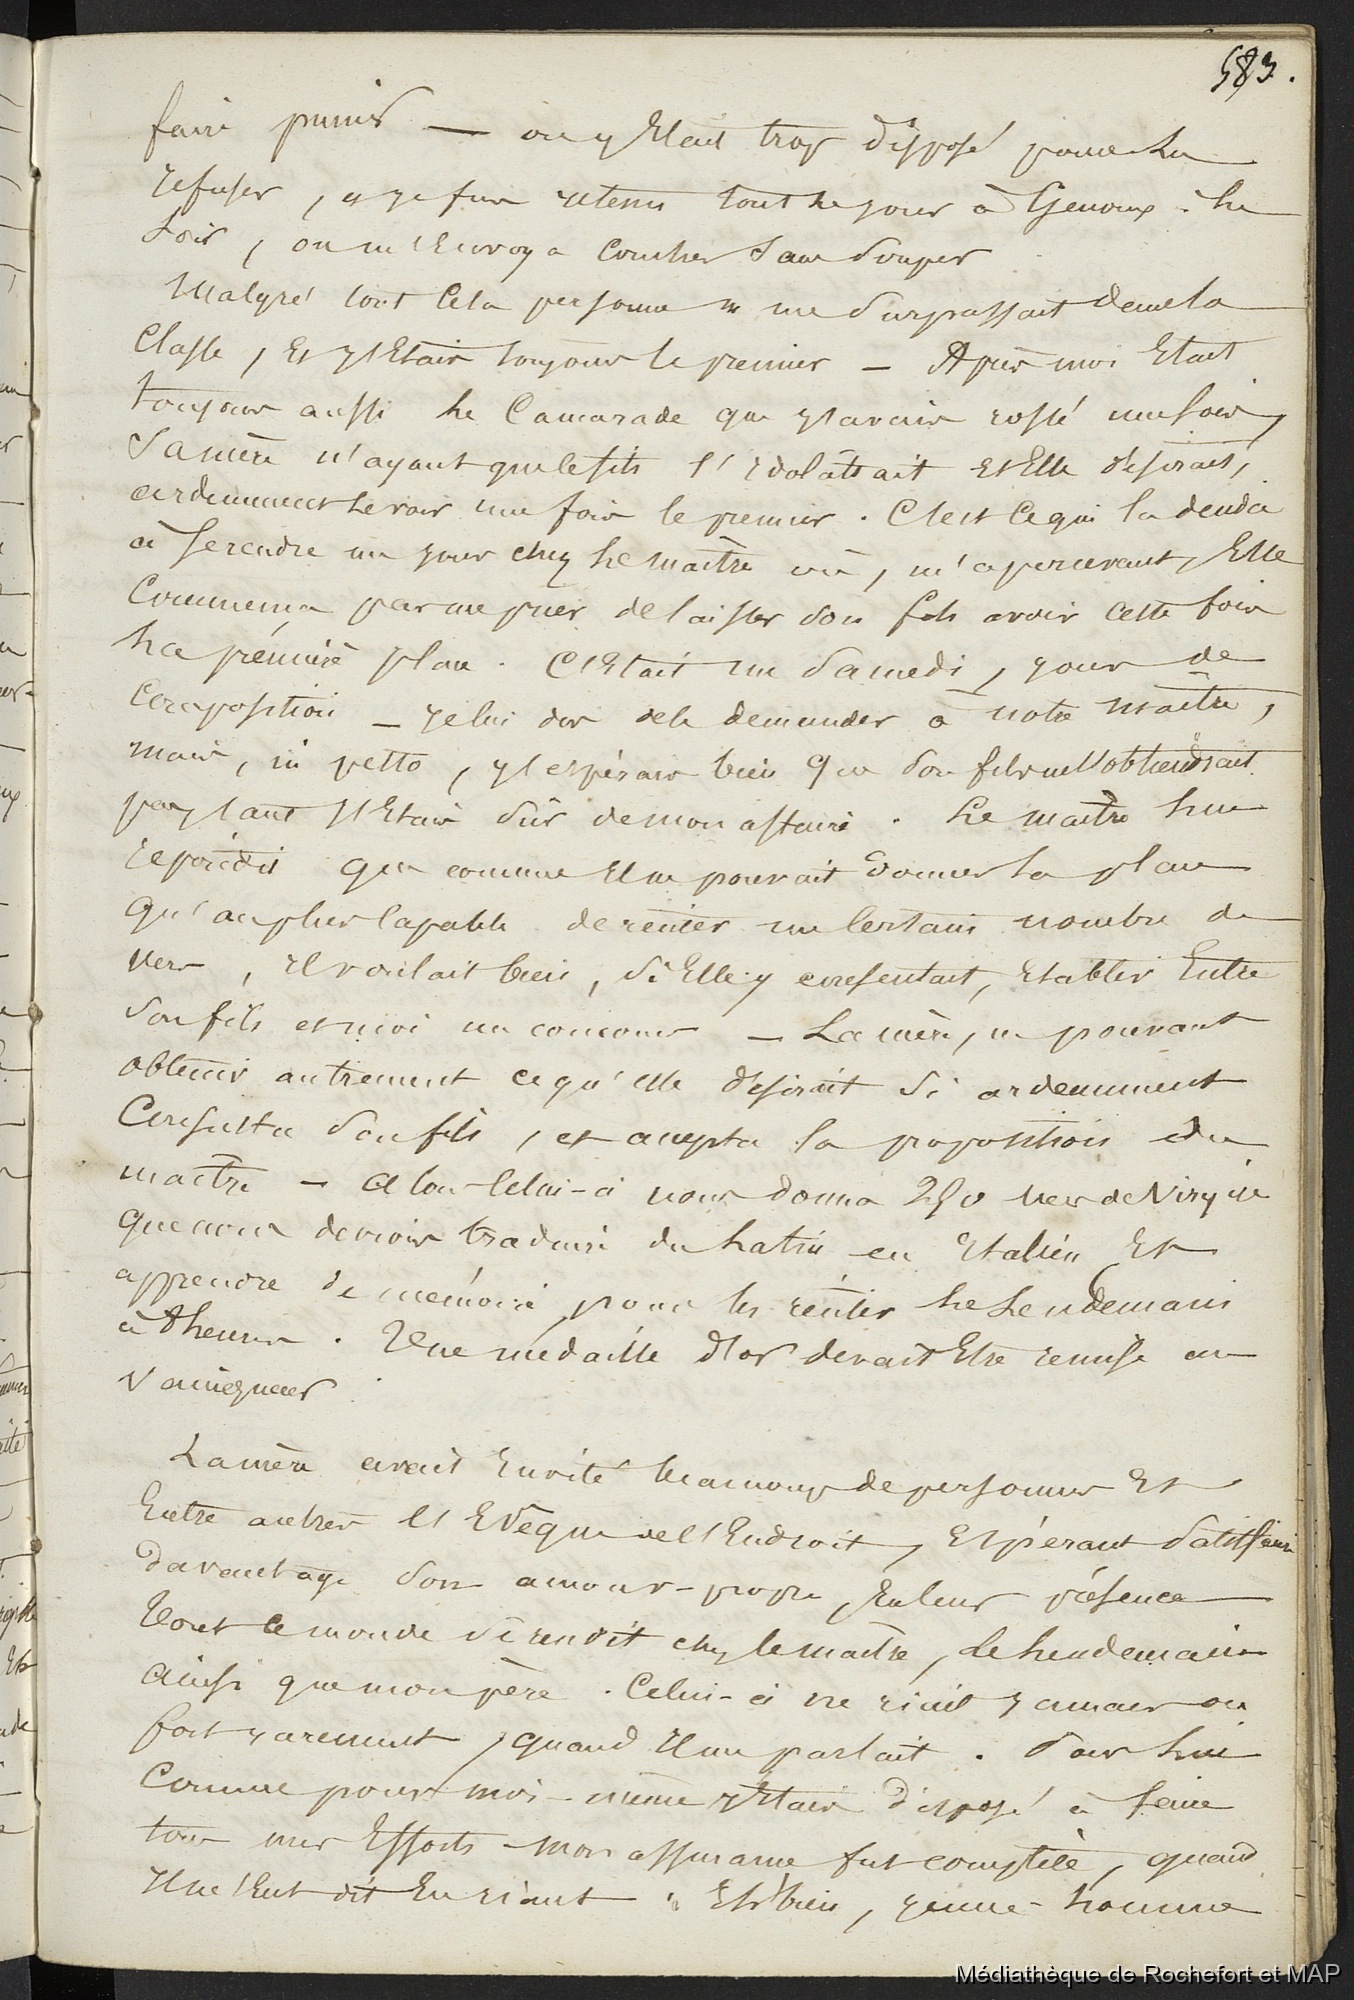 583.
faire punir — on y était trop disposé pour le
refuser, et je fus retenu tout le jour à Genoux. Le
Soir, on m'Envoya coucher Sans Souper
Malgré tout Cela personne ne me Surpassait dans la
Classe, Et j'Etais toujours le premier — Après moi Etait
toujours aussi le Camarade que j'avais rossé un soir,
Sa mère n'ayant que ce fils l'idolâtrait Et Elle désirait,
ardemment le voir une fois le premier. C'est Ce qui la décida
à Se rendre un jour chez le maître où, m'apercevant, Elle
Commença par me prier de laisser Son fils avoir cette fois
La première place. C'Etait un Samedi, jour de
Composition — je lui dis de le demander à notre maître,
mais, in petto, j'espérais bien que Son fils ne l'obtiendrait
pas, tant j'Etais Sûr de mon affaire. Le maître lui
répondit que comme il ne pouvait donner la place
qu'au plus Capable de réciter un Certain nombre de
Vers, il voulait bien, Si Elle y consentait, Etablir Entre
Son fils et moi un concours — La mère, ne pouvant
obtenir autrement ce qu'elle désirait Si ardemment
Consulta Son fils, et accepta la proposition du
maître — alors Celui-ci nous donna 250 Vers de Virgile
que nous devions traduire du Latin en Italien Et
apprendre de mémoire pour les réciter le Lendemain
à heures. Une médaille d'or devait Etre remise au
Vainqueur.
La mère avait Invité beaucoup de personnes Et
Entre autres l'Evêque de l'Endroit, Espérant Satisfaire
davantage Son amour-propre, En leur présence
Tout le monde Se rendit chez le maître, le Lendemain
ainsi que mon père. Celui-ci ne riait jamais ou
fort rarement, quand il me parlait. Pour lui
Comme pour moi-même j'Etais disposé à faire
tous mes Efforts — Mon assurance fut complète, quand
Il m'eut dit En riant : Eh bien, jeune-homme
Médiathèque de Rochefort et MAP